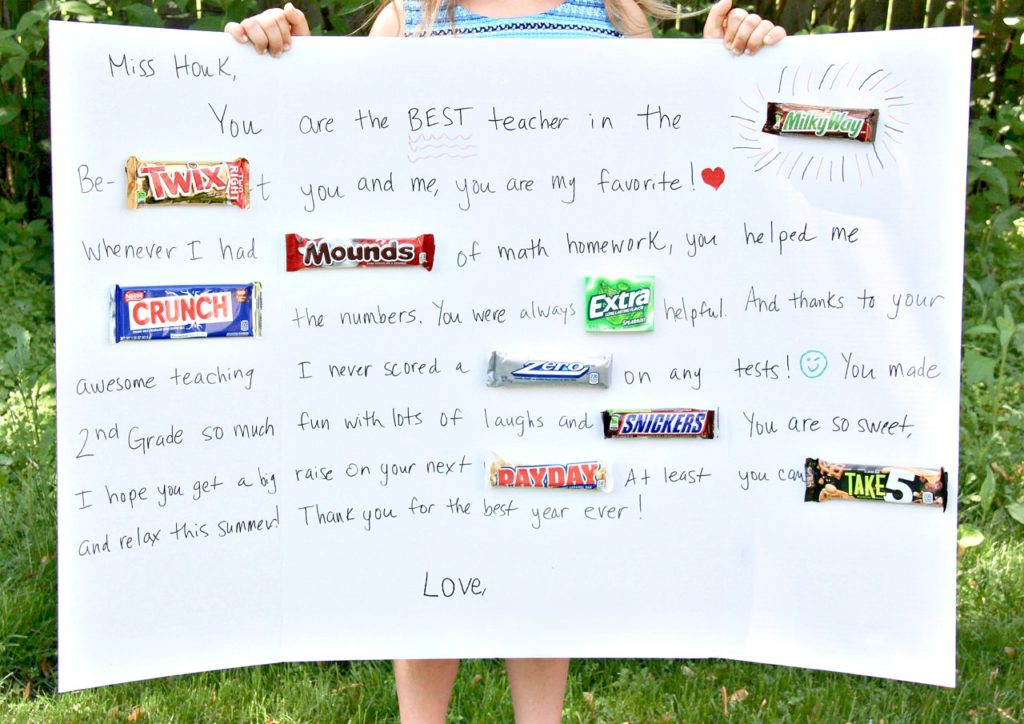 Miss Houk,
You are the BEST teacher in the MilkyWay
Be- TWIX t you and me, you are my favorite!
Whenever I had Mounds of math homework, you helped me
CRUNCH the numbers. You were always Extra helpful. And thanks to your
awesome teaching I never scored a Zero on any tests! You made
2nd Grade so much fun with lots of laughs and SNICKERS You are so sweet,
I hope you get a big raise on your next PAYDAY At least you can TAKE 5
and relax this summer! Thank you for the best year ever!
Love,